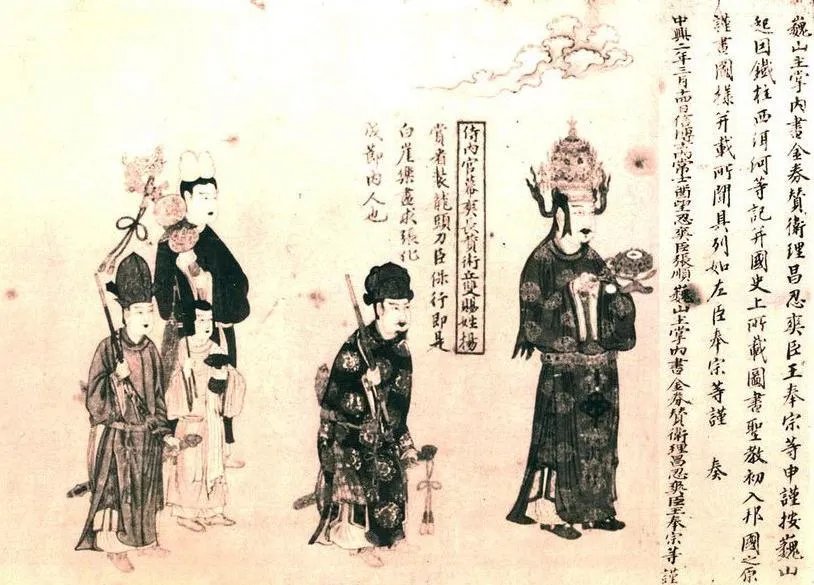 巍山主掌內書金券贊衛理昌忍爽臣王奉宗等申謹按巍山
起因鐵柱西洱河等記并國史上所載圖書聖教初入邦國之原
謹畫圖樣并載所聞具列如左臣奉宗等謹　奏
中興二年三月十四日信博士內常士酋望忍爽臣張順巍山主掌內書金券贊衛理昌忍爽臣王奉宗等謹
侍內官幕爽長贊衛丘雙賜姓楊
賞者裝龍頭刀臣保行即是
白崖樂盡求張化
成節內人也